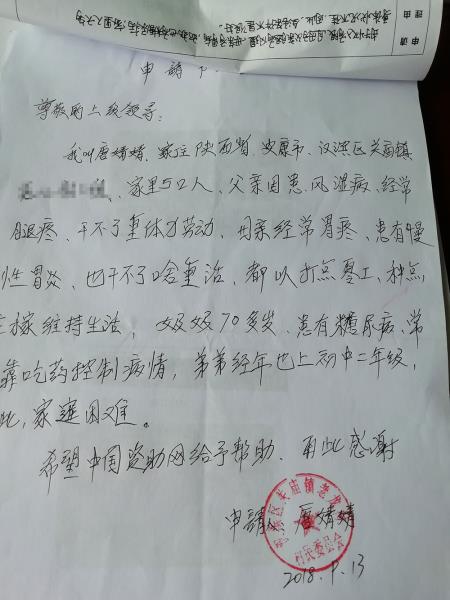 申请
理由
申請
尊敬的上级领导:
我叫唐婧婧、家住陕西省、安康市、汉滨区关庙镇
、家里5口人,父亲因患、风湿病、经常
腿疼、干不了重体力劳动,母亲经常胃疼、患有慢
性胃炎,也干不了啥重活,都以打点零工、种点
庄稼维持生活,奶奶70多岁、患有糖尿病、常
靠吃药控制病情,弟弟经年也上初中二年级,
此,家庭困难。
希望中国资助网给予帮助、再此感谢
申請人:唐婧婧
滨区关庙镇老龙
村民委员会
2018.9.13